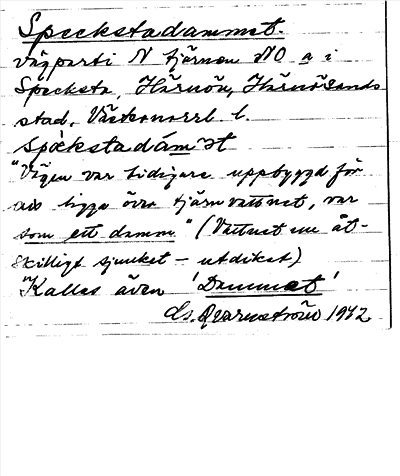 Speckstadammet.
Vägparti N tjärnen NO a i
Specksta, Härnön, Härnösands
stad, Västernorrl. l.
spèkstadám̄ət
"Vägen var tidigare uppbyggd för
att ligga över tjärnvattnet, var
som ett damm." (Vattnet nu åt-
skilligt sjunket – utdiket)
Kallas även 'Dammet'
Qvarnström 1972